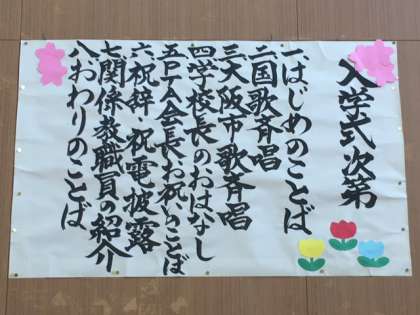 入学式次第
一はじめのことば
二国歌斉唱
三大阪市歌斉唱
四学校長のおはなし
五PTA会長お祝いのことば
六祝辞、祝電披露
七関係教職員の紹介
八おわりのことば